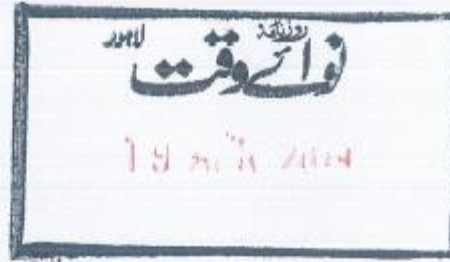 روزنامہ
نوائے وقت
لاہور